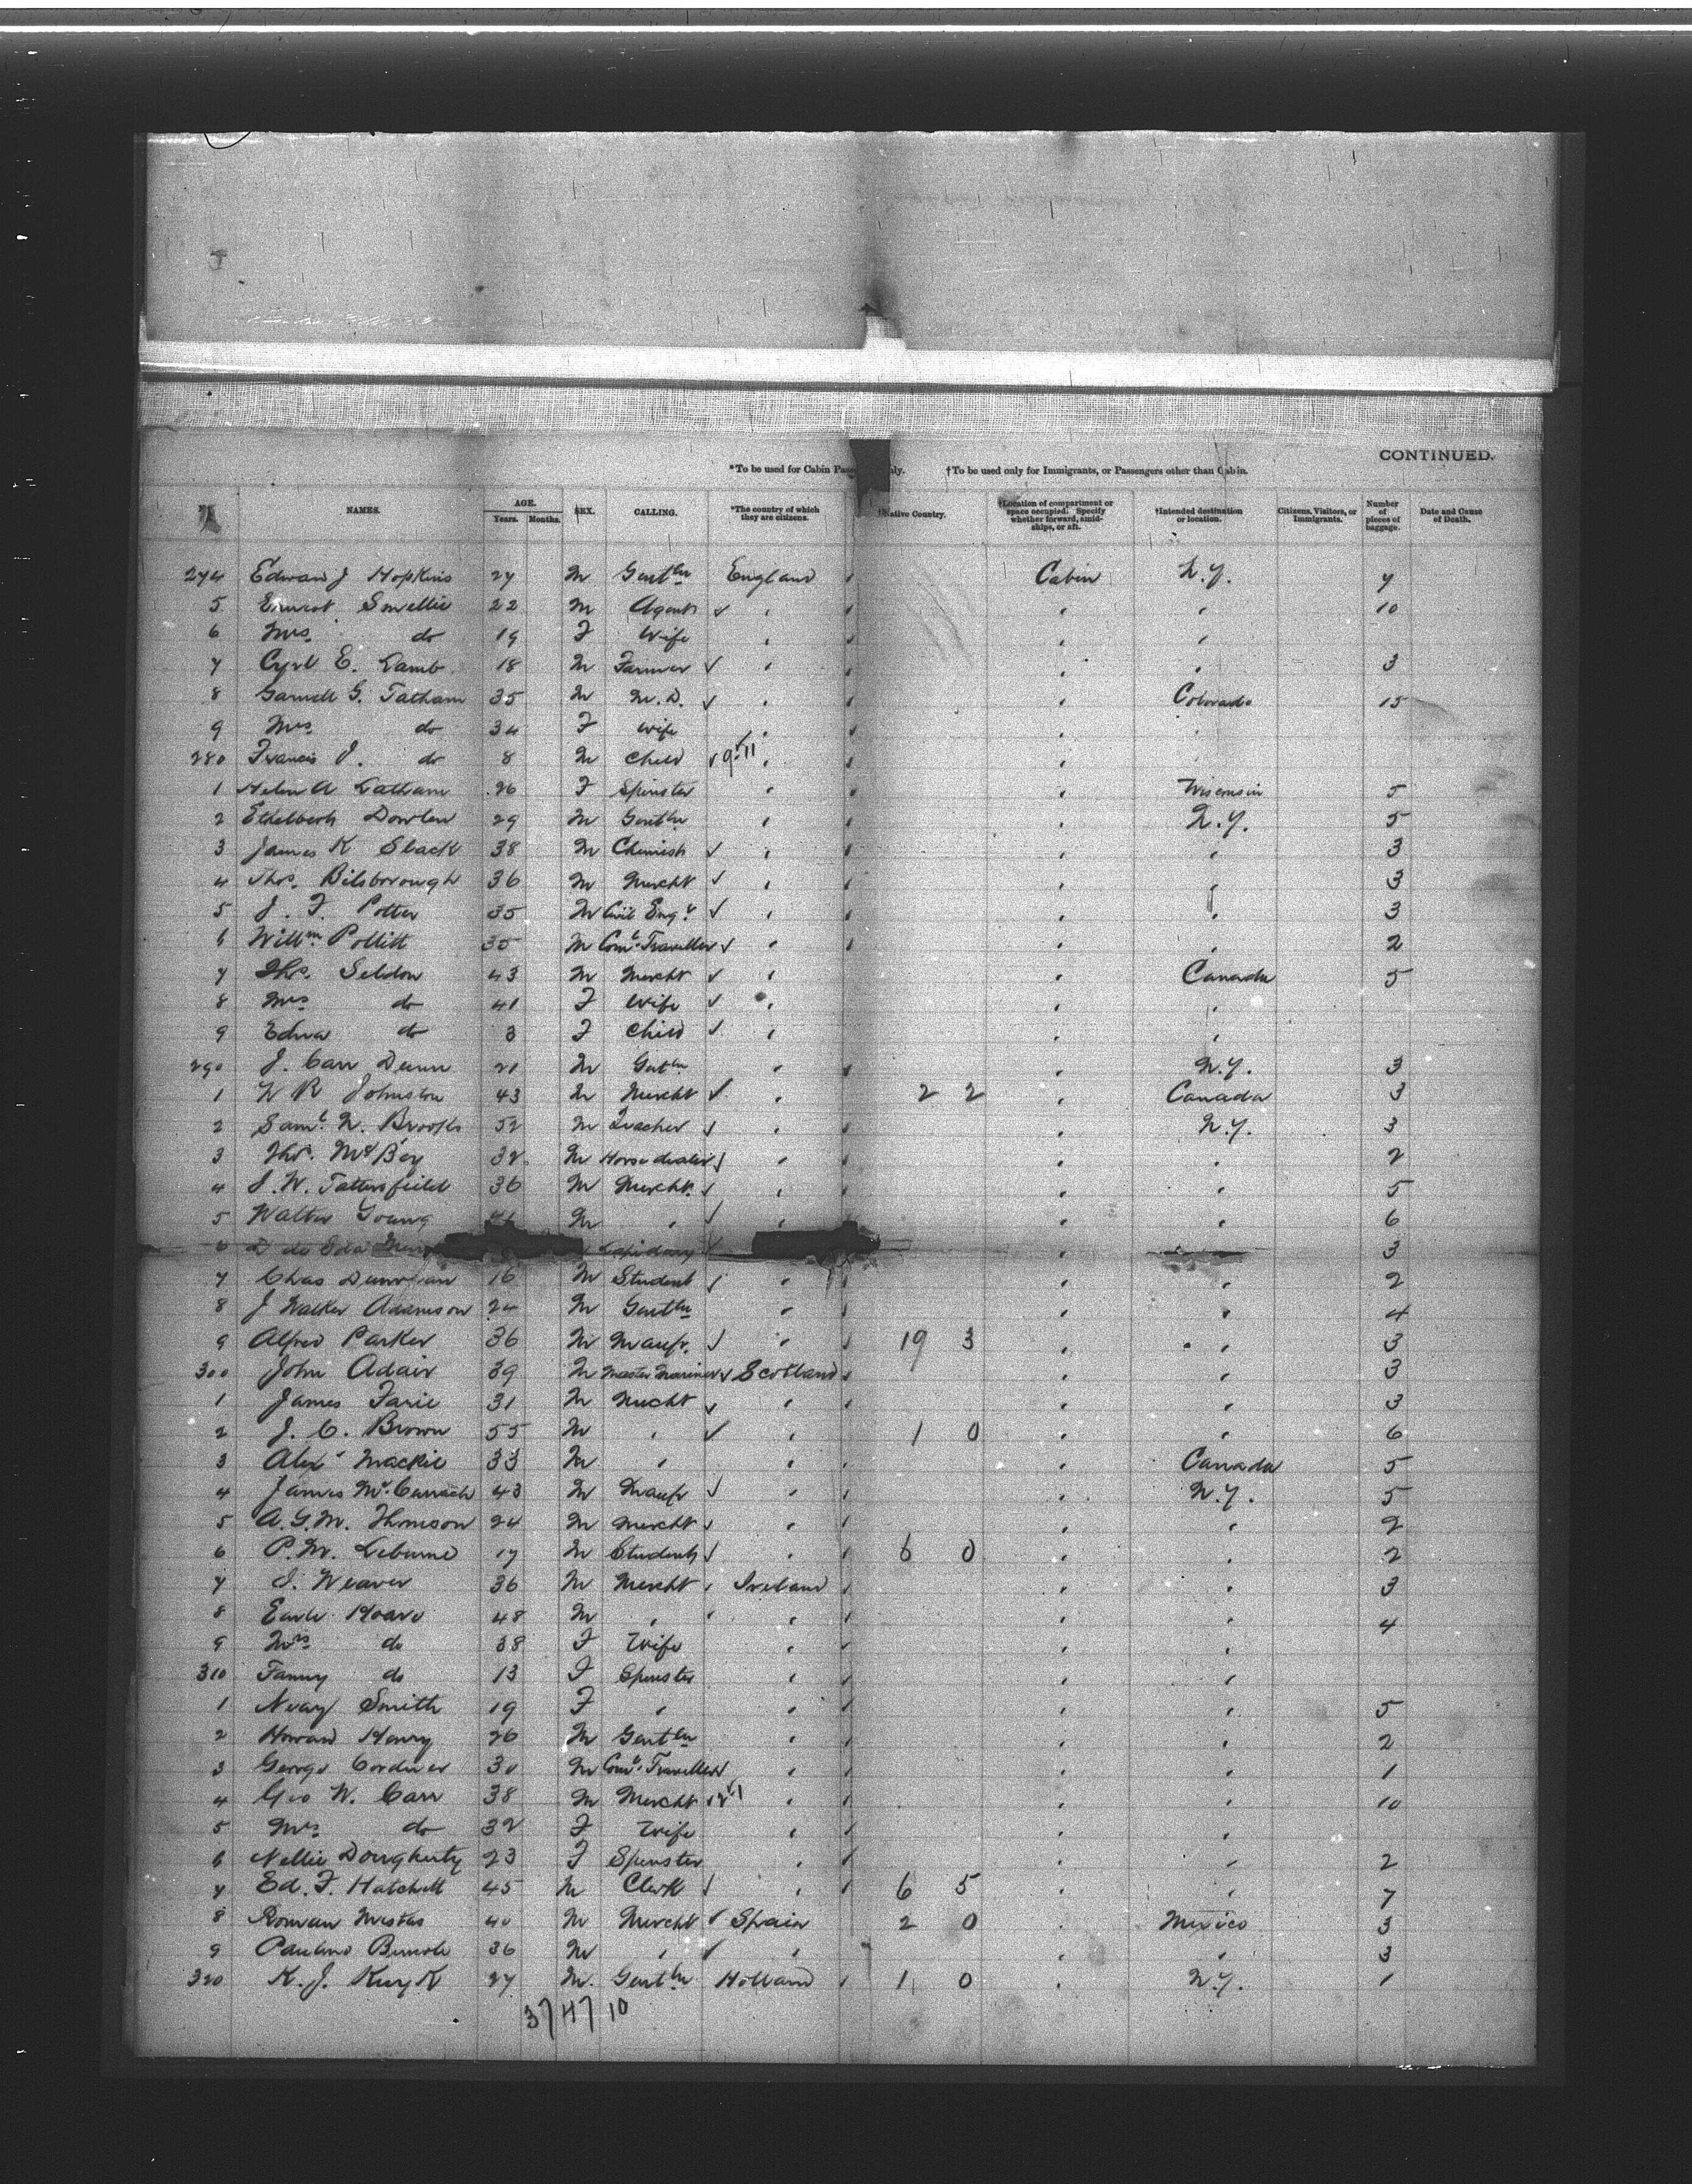 CONTINUED.
*To be used for Cabin Pass nly. †To be used only for Immigrants, or Passengers other than Cabin.
NAMES. AGE. Years. Months. SEX. CALLING. *The country of which they are citizens. †Native Country. †Location of compartment or space occupied. Specify whether forward, amidships, or aft. †Intended destination or location. Citizens, Visitors, or Immigrants. Number of pieces of baggage. Date and Cause of Death.
274 Edward J Hopkins 27 M Gentln England Cabin N.Y. 7
5 Ernest Smellie 22 M Agent 10
6 Mrs do 19 F Wife
7 Cyril E. Lamb 18 M Farmer 3
8 G. Tatham 35 M M.D. Colorado 15
9 Mrs do 34 F Wife
280 Francis J. do 8 M Child
1 Helen A Latham 26 F Spinster Wisconsin 5
2 Ethelbert Dowlen 29 M Gentln N.Y. 5
3 James K Slack 38 M Chemist 3
4 Thos. Bilsborough 36 M Mercht 3
5 J. F. Potter 35 M Civil Engr 3
6 Willm Pollitt 35 M Coml. Traveller 2
7 Thos. Seldon 43 M Mercht Canada 5
8 Mrs do 41 F Wife
9 Edna do 3 F Child
290 J. Carr Dunn 21 M Gentln N.Y. 3
1 W R Johnston 43 M Mercht 2 2 Canada 3
2 Saml. N. Brooks 52 M Teacher N.Y. 3
3 Thos. 32 M Horse dealer 2
4 J. W. Tattersfield 36 M Mercht. 5
5 Walter Young 41 M 6
6 Lapidary 3
7 Chas 16 M Student 2
8 J Walker Adamson 24 M Gentln 4
9 Alfred Parker 36 M Manfr. 19 3 3
300 John Adair 39 M Master Mariner Scotland 3
1 James Farie 31 M Mercht 3
2 J. C. Brown 55 M 1 0 6
3 Alexr Mackie 33 M Canada 5
4 James 43 M Manfr N.Y. 5
5 A.G.M. Thomson 24 M Mercht 2
6 P.M. 17 M Student 6 0 2
7 J. Weaver 36 M Mercht Ireland 3
8 Earle Hoare 48 M 4
9 Mrs do 38 F Wife
310 Fanny do 13 F Spinster
1 Smith 19 F 5
2 Howard Henry 26 M Gentln 2
3 George Cordner 30 M Coml. Traveller 1
4 Geo W. Carr 38 M Mercht 10
5 Mrs do 32 F Wife
6 Nellie Dougherty 23 F Spinster 2
7 Ed. F. Hatchell 45 M Clerk 6 5 7
8 Roman Mestas 40 M Mercht Spain 2 0 Mexico 3
9 36 M 3
320 K. J. 27 M. Gentln Holland 1 0 N.Y. 1
37 47 10